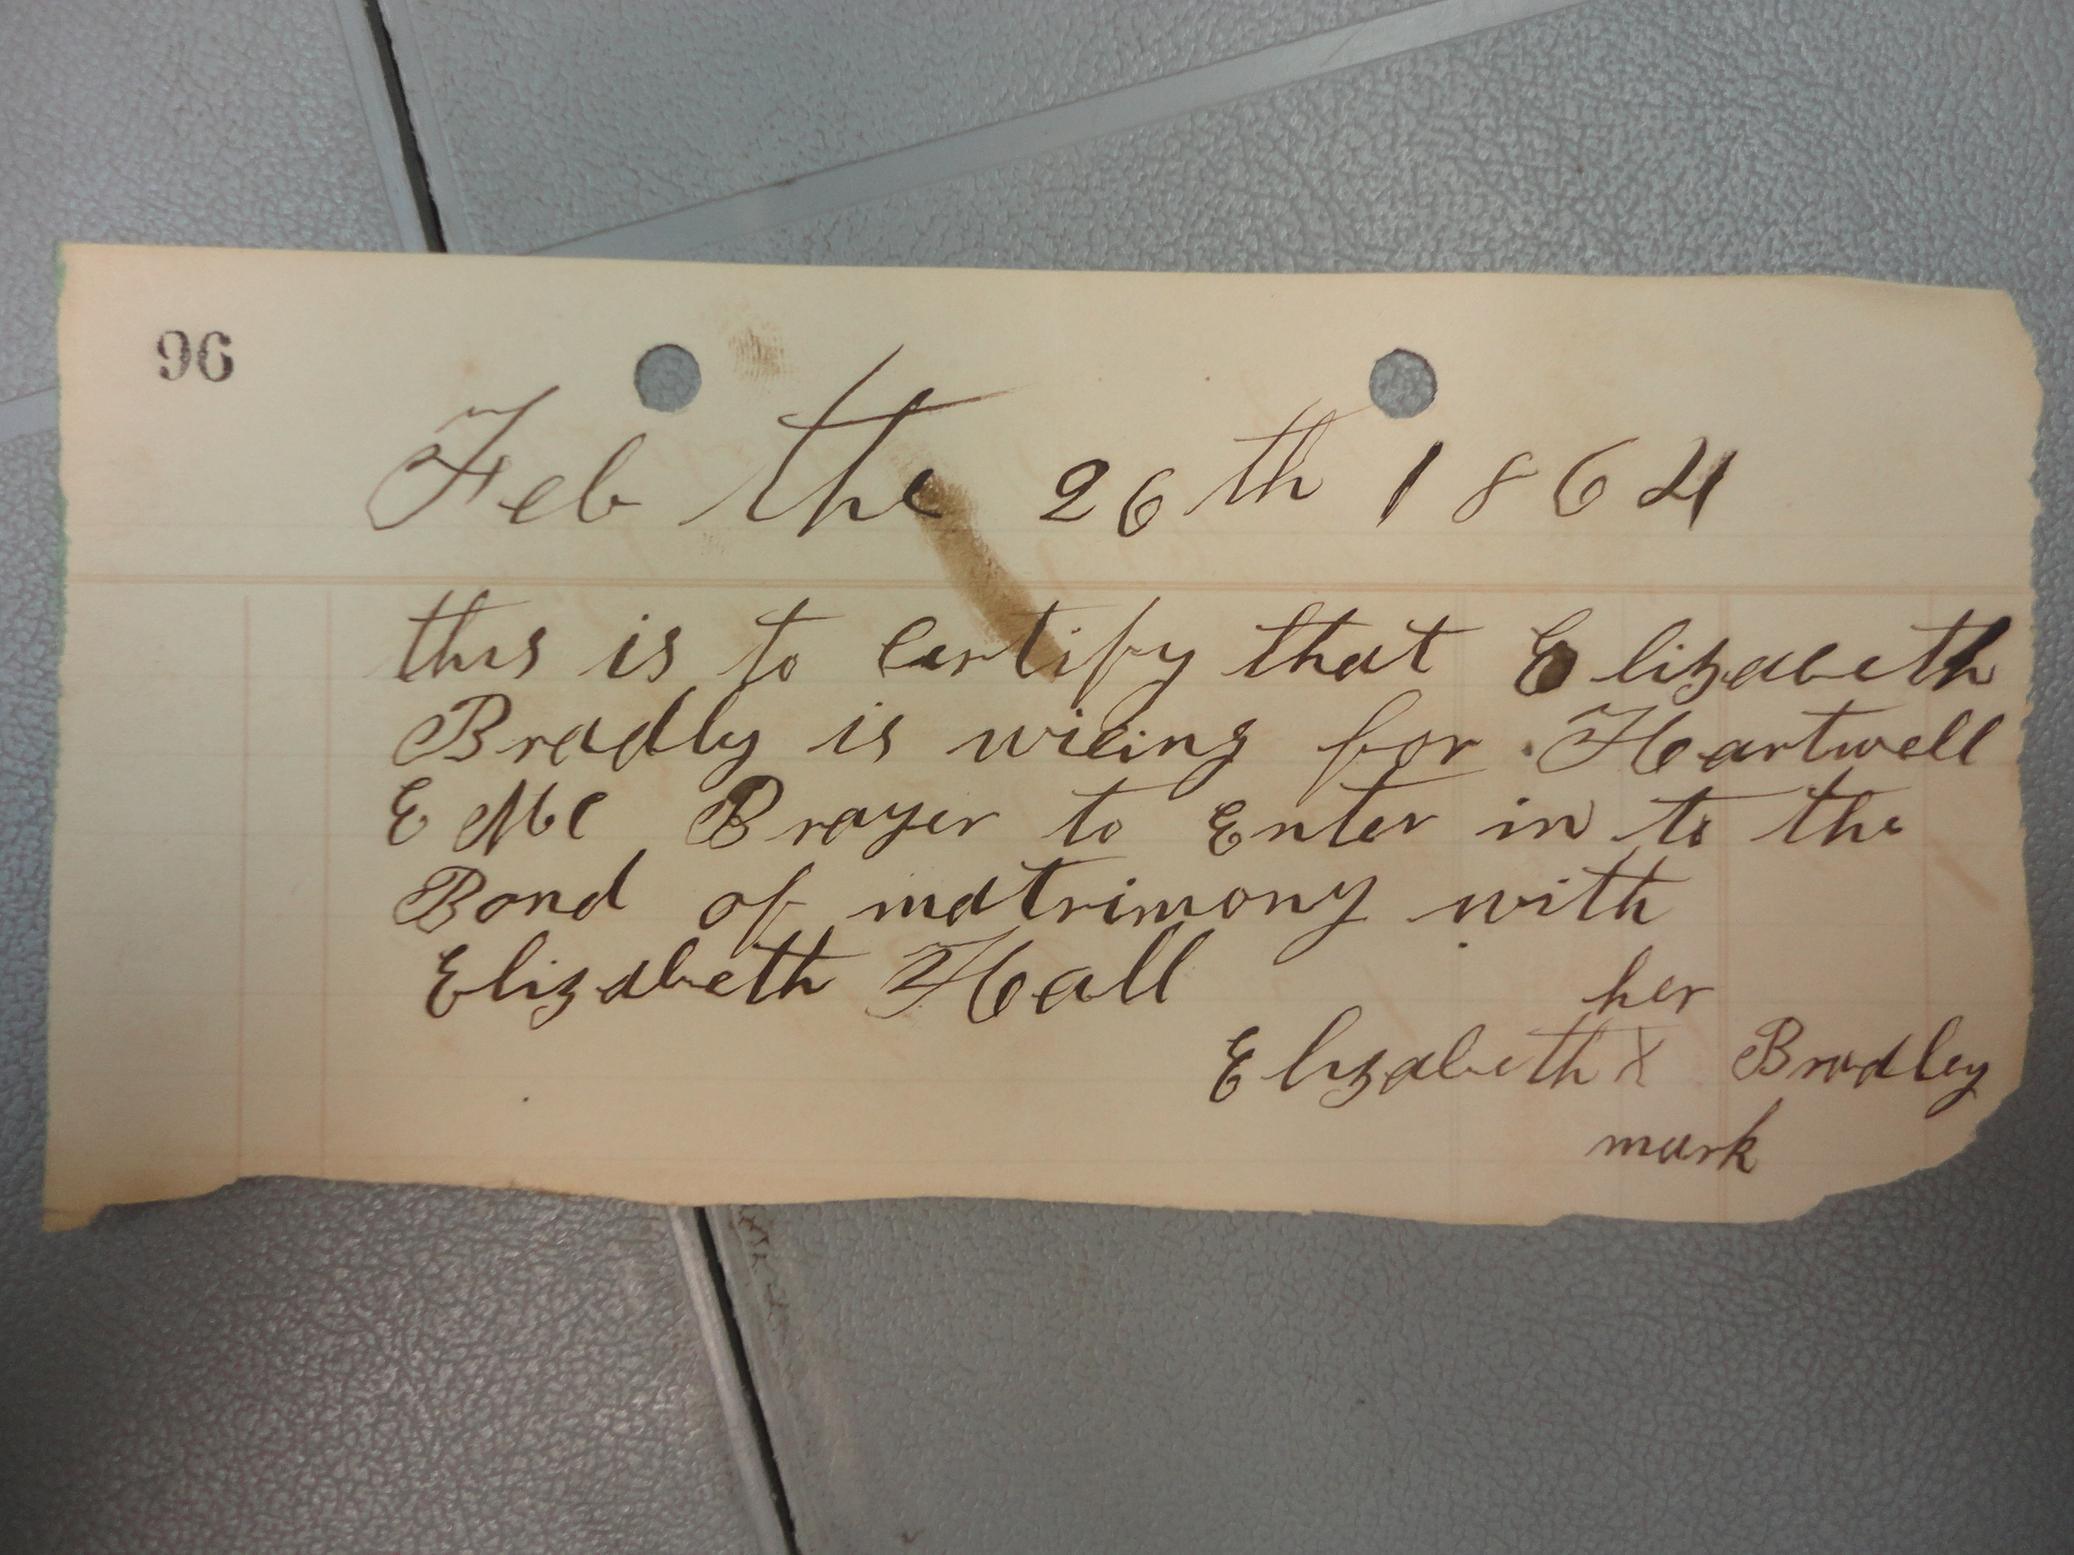 96
Feb the 26th 1864
this is to Certify that Elizabeth
Bradly is wiling for Hartwell
E Mc Brayer to Enter in to the
Bond of matrimony with
Elizabeth Hall
her
Elizabeth X Bradley
mark